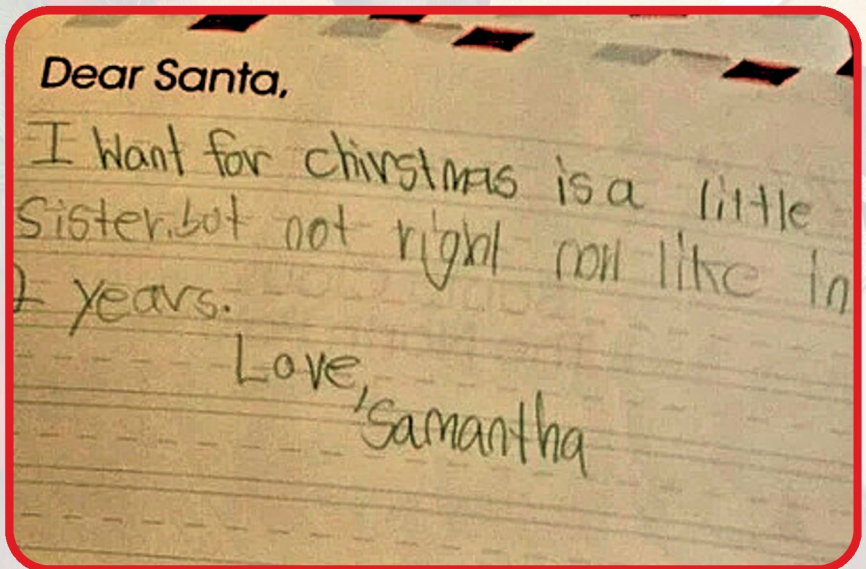 Dear Santa,
I Want for chirstmas is a little
Sister.but not right now like in
2 years.
Love,
Samantha